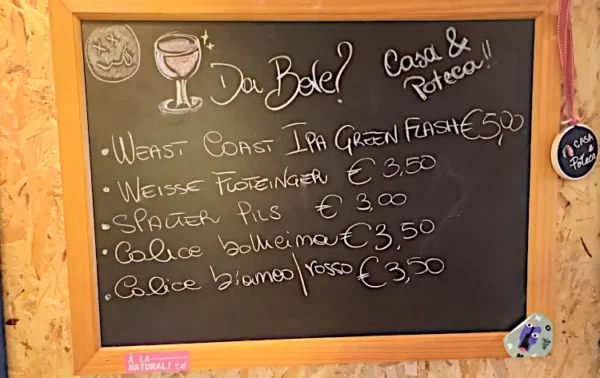 Da Bere?
Casa &
Poteca!!
• WEAST COAST IPA GREEN FLASH €5,00
• WEISSE FLOTZINGER € 3,50
• SPALTER PILS € 3,00
• Calice bollicina €3,50
• Calice bianco/rosso €3,50
CASA
&
Poteca
À LA
NATURAL!